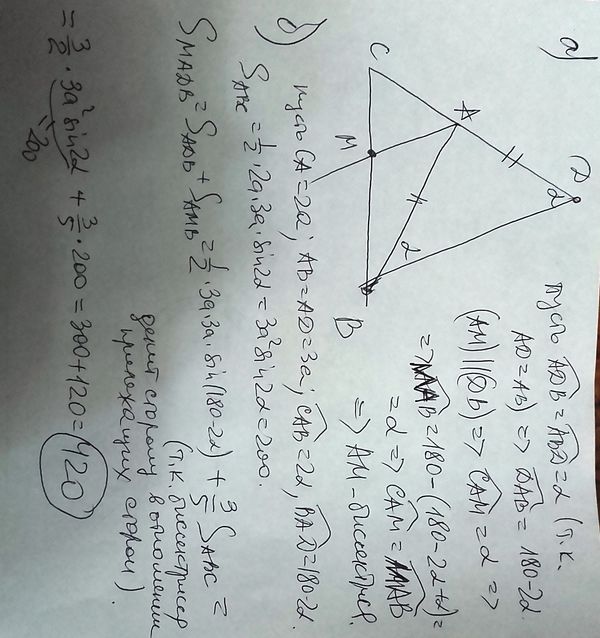 а)
D
α
A
C
α
M
B
пусть ADB = ABD = α (т.к.
AD = AB) => DAB = 180-2α
(AM) || (DB) => CAM = α =>
=> MAB = 180-(180-2α+α) =
= α => CAM = MAB
=> AM - биссектриса.
б) пусть CA = 2a; AB = AD = 3a; CAB = 2α, BAD = 180-2α.
S_ABC = 1/2 · 2a · 3a · sin2α = 3a² sin2α = 200.
S_MADB = S_ADB + S_AMB = 1/2 · 3a · 3a · sin(180-2α) + 3/5 S_ABC =
(т.к. биссектриса
делит сторону в отношении
прилежащих сторон).
= 3/2 · 3a² sin2α + 3/5 · 200 = 300 + 120 = 420
= 200